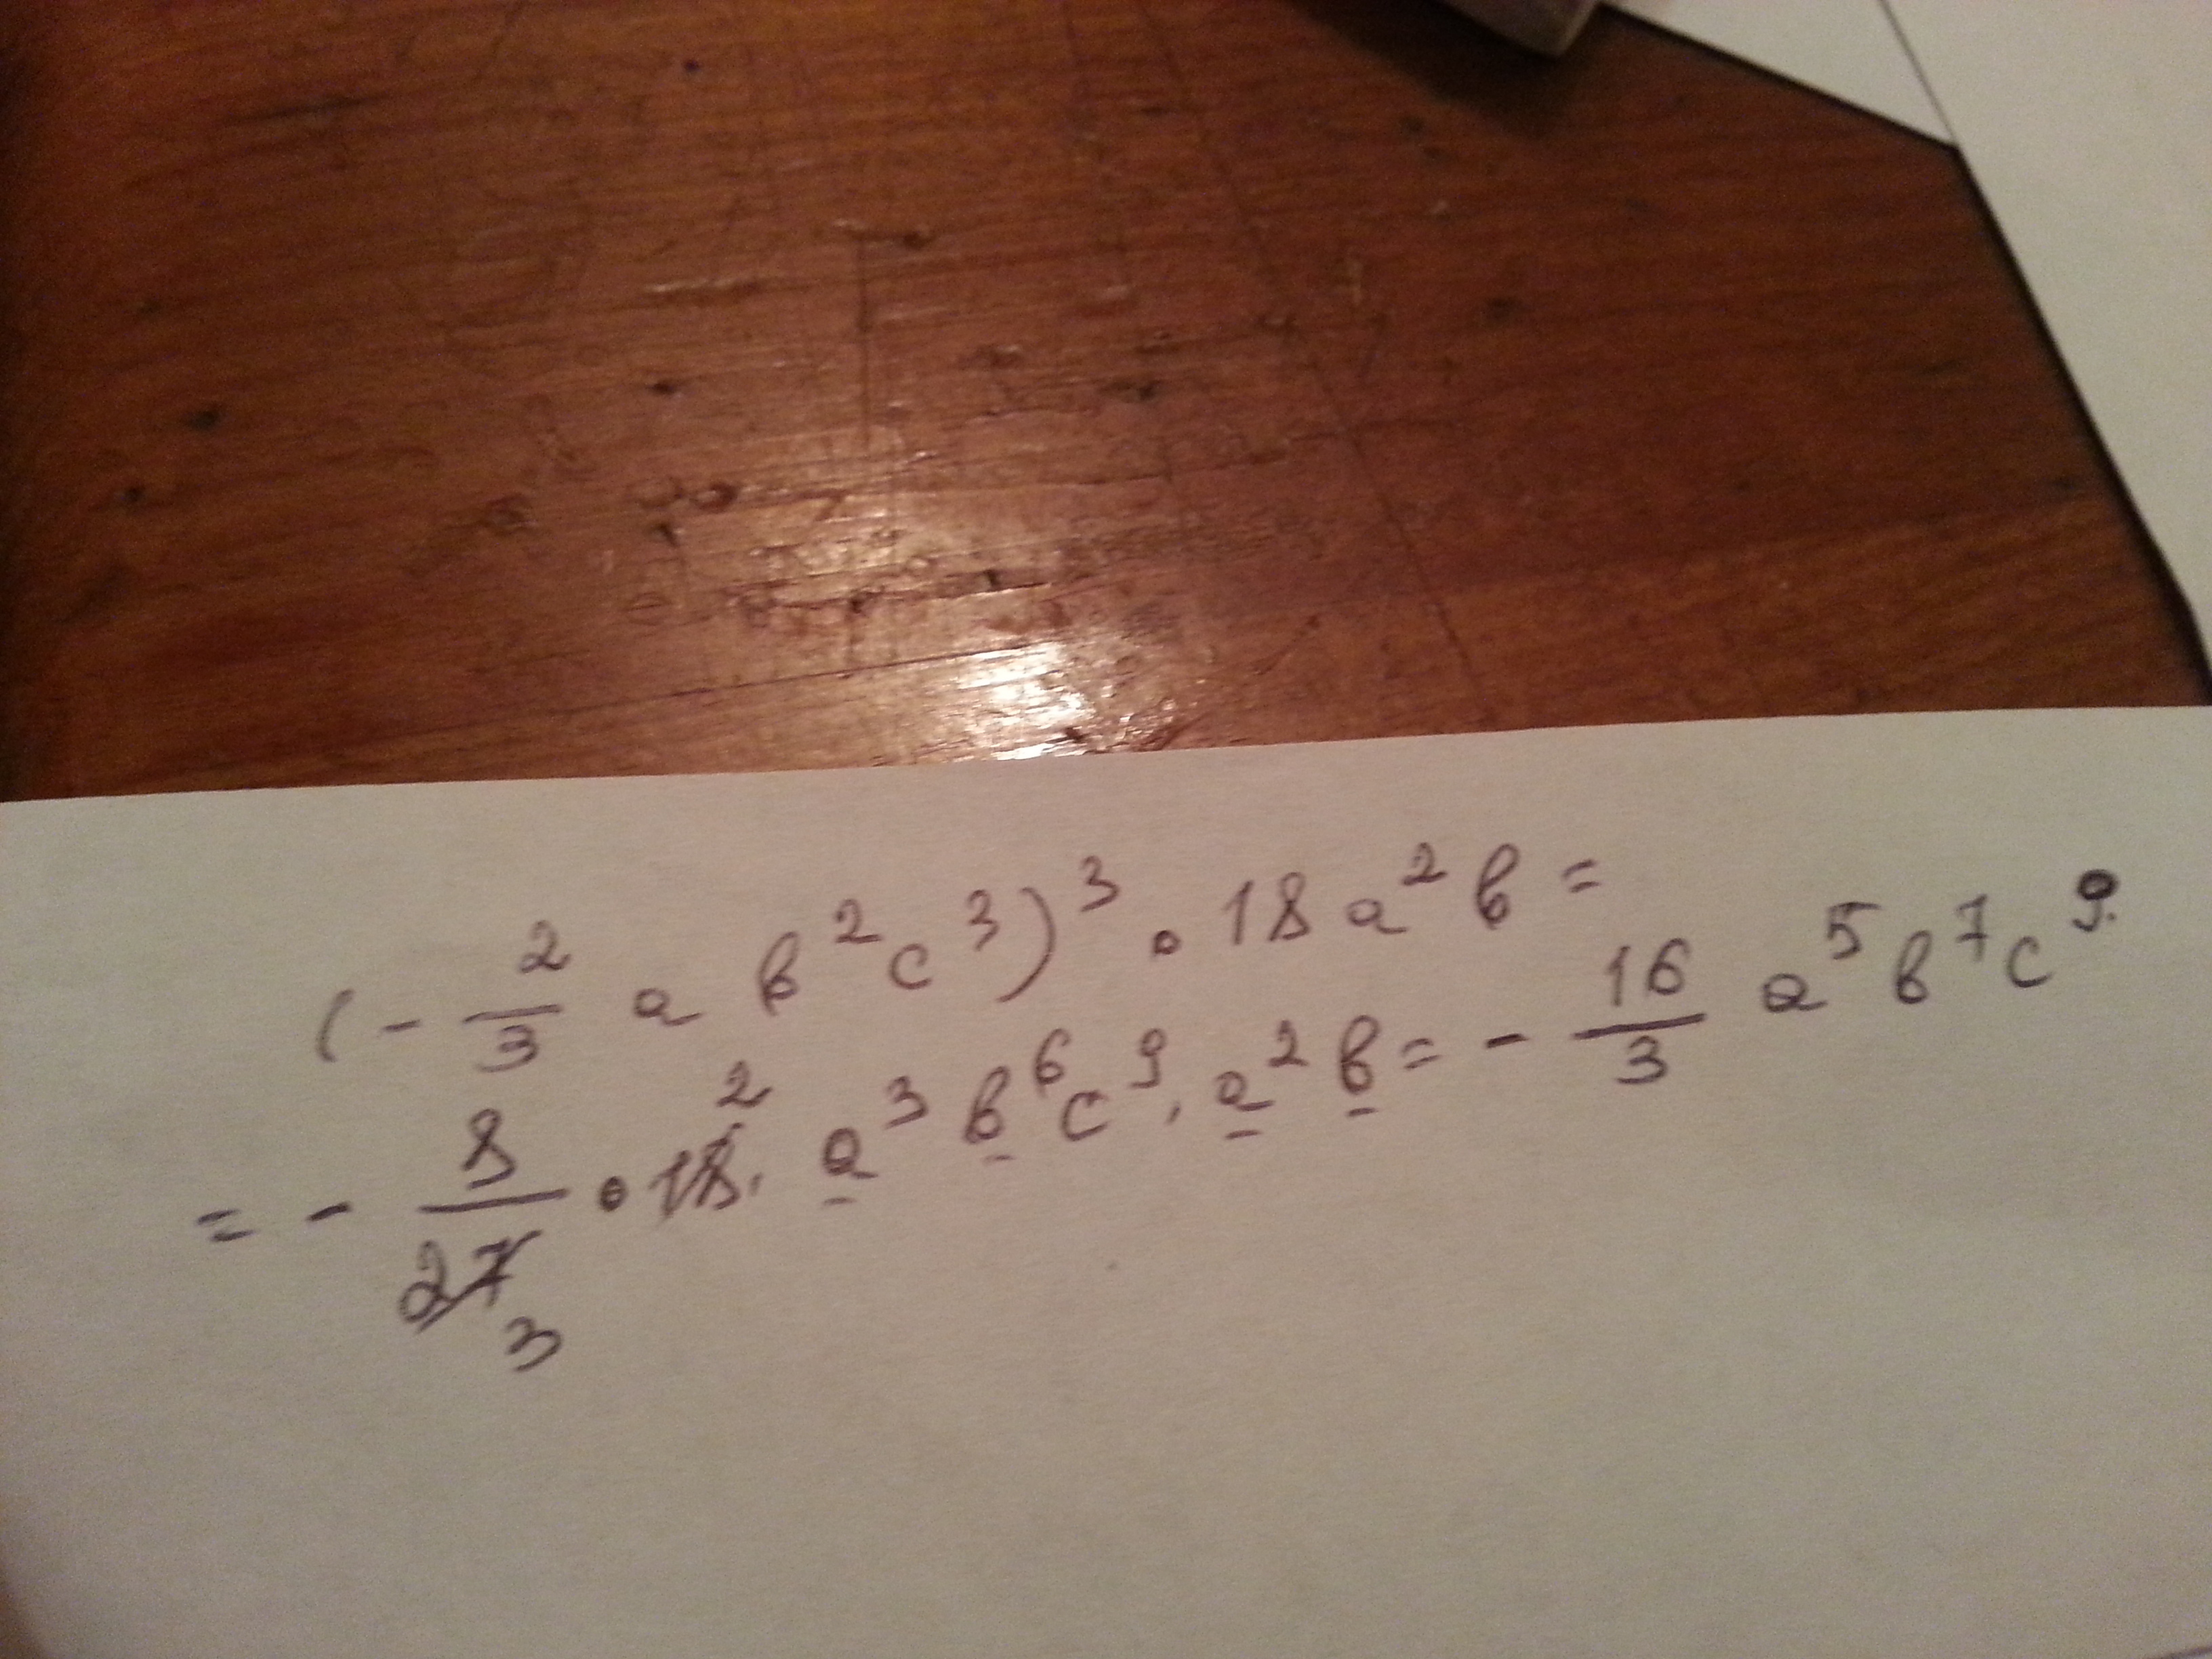 (-2/3 a b²c³)³ · 18a²b =
= - 8/27 3 · 18 2 · a³b⁶c⁹ · a²b = - 16/3 a⁵b⁷c⁹.